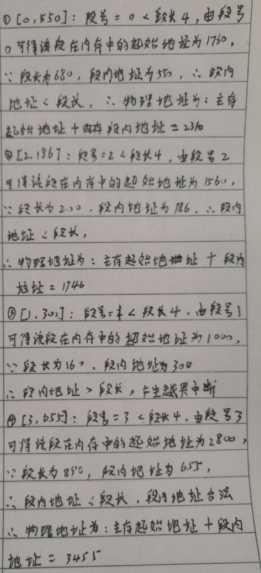 ①[0,550]：段号=0<段长4，由段号
0可得该段在内存中的起始地址为1760，
∵段长为680，段内地址为550，∴段内
地址<段长，∴物理地址为：主存
起始地址+段内地址=2310
②[2,186]：段号=2<段长4，由段号2
可得该段在内存中的起始地址为1560，
∵段长为200，段内地址为186，∴段内
地址<段长，
∴物理地址为：主存起始地址+段内
地址=1746
③[1,300]：段号=1<段长4，由段号1
可得该段在内存中的起始地址为1000，
∵段长为160，段内地址为300
∴段内地址>段长，产生越界中断
④[3,655]：段号=3<段长4，由段号3
可得该段在内存中的起始地址为2800，
∵段长为890，段内地址为655，
∴段内地址<段长，段内地址合法
∴物理地址为：主存起始地址+段内
地址=3455